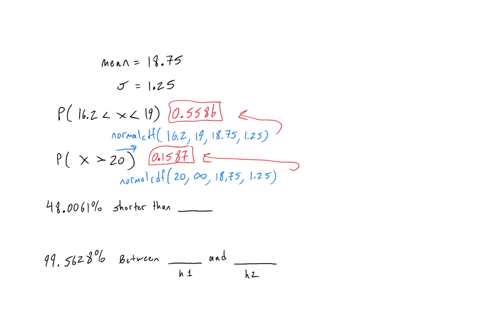 mean = 18.75
σ = 1.25
P( 16.2 < x < 19) 0.5586
normalcdf( 16.2, 19, 18.75, 1.25)
P( x > 20) 0.1587
normalcdf( 20, ∞, 18.75, 1.25)
48.0061% shorter than ____
99.5628% Between ____ and ____
h1 h2